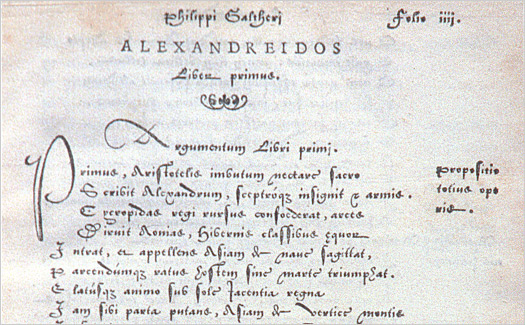 Philippi Galtheri Folio iiii.
ALEXANDREIDOS
Liber primus.
Argumentum Libri primi.
Primus, Aristotelis imbutum nectare sacro
Scribit Alexandrum, sceptróq; insignit & armis.
Cecropidas regi rursus confoederat, arces
Diruit Aonias, Hibernis classibus equor
Intrat, et appellens Asiam de naue sagittat,
Parcendumq; ratus hostem sine marte triumphat.
Elatúsq; animo sub sole Iacentia regna
Iam sibi parta putans, Asiam de vertice montis
Propositio
totius ope
ris.